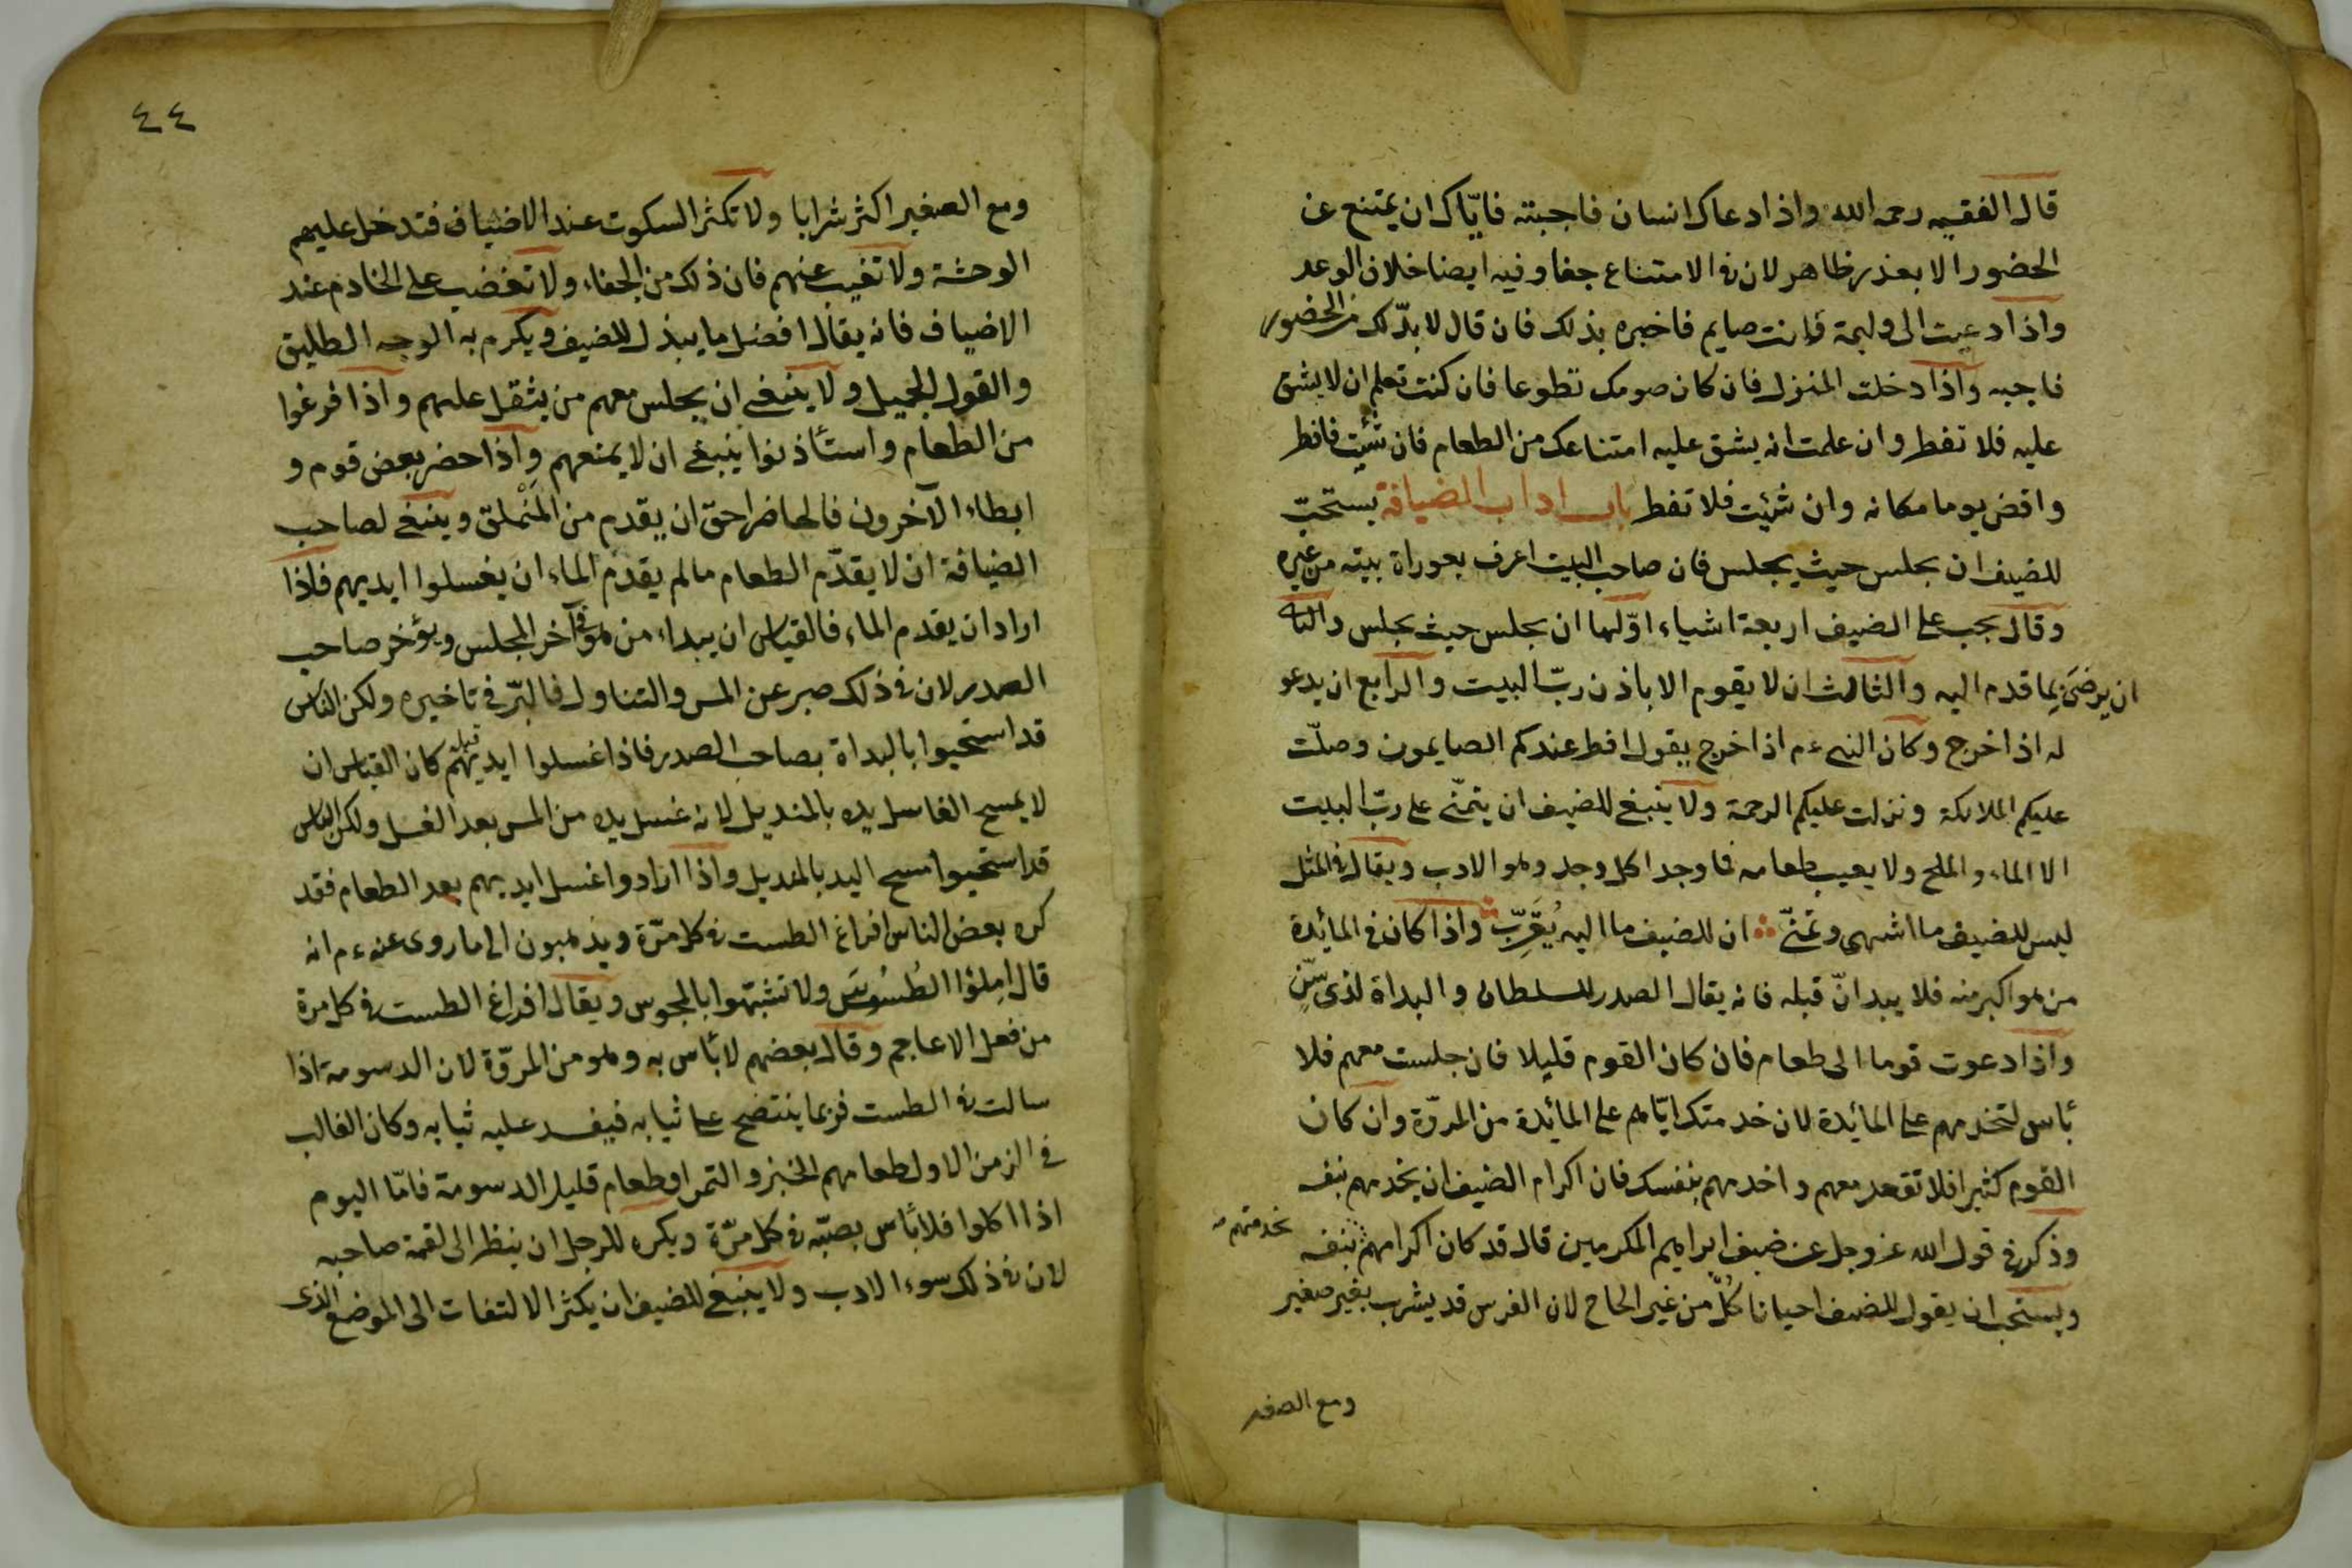 قال الفقيه رحمه الله واذا دعاك انسان فاجبته فايّاك ان يمتنع عن
الحضور الا بعذر ظاهر لان فى الامتناع جفا وفيه ايضا خلاف الوعد
واذا دعيت الى وليمة فانت صايم فاخبره بذلك فان قال لا بدّ لك من الحضور
فاجبه واذا دخلت المنزل فان كان صومك تطوعا فان كنت تعلم ان لا يشق
عليه فلا تفطر وان علمت انه يشق عليه امتناعك من الطعام فان شئت فافطر
واقض يوما مكانه وان شئت فلا تفطر باب اداب الضيافة يستحبّ
للضيف ان يجلس حيث يجلس فان صاحب البيت اعرف بعوراة بيته من غيره
وقال يجب على الضيف اربعة اشياء اوّلها ان يجلس حيث يجلس والثانى
ان يرضى بما قدم اليه والثالث ان لا يقوم الا باذن ربّ البيت والرابع ان يدعو
له اذا خرج وكان النبى ءم اذا خرج يقول افطر عندكم الصايمون وصلّت
عليكم الملائكة ونزلت عليكم الرحمة ولا ينبغى للضيف ان يتمنّى على ربّ البيت
الا الماء والملح ولا يعيب طعامه فما وجد اكل وحمد وهو الادب ويقال فى المثل
ليس للضيف ما اشهى وتمنّى ان للضيف ما اليه يُقَرِّبّ واذا كان فى المائدة
من هو اكبر منه فلا يبدانّ قبله فانه يقال الصدر للسلطان والبداة لذى سّنٍ
واذا دعوت قوما الى طعام فان كان القوم قليلا فان جلست معهم فلا
بٔاس لتخدمهم على المائدة لان خدمتك ايّاهم على المائدة من المروّة وان كان
القوم كثيرا فلا تقعد معهم واخدمهم بنفسك فان اكرام الضيف ان يخدمهم بنفسه
وذكر فى قول الله عز وجل عن ضيف ابراهيم المكرمين قال قد كان اكرامهم بنفسه
بخدمتهم
ويستحب ان يقول للضيف احيانا كُلّ من غير الحاح لان الفرس قد يشرب بغير صفير
ومع الصفير
٤٤
ومع الصفير اكثر شرابا ولا تكثر السكوت عند الاضياف فتدخل عليهم
الوحشة ولا تغيب عنهم فان ذلك من الجفاء ولا تغضب على الخادم عند
الاضياف فانه يقال افضل ما يبذل للضيف ويكرم به الوجه الطليق
والقول الجميل ولا ينبغى ان يجلس معهم من يثقل عليهم واذا فرغوا
من الطعام واستأذنوا ينبغى ان لا يمنعهم واذا حضر بعض قوم و
ابطاء الآخرون فالحاضر احقّ ان يقدم من المتملق وينبغى لصاحب
الضيافة ان لا يقدّم الطعام مالم يقدم الماء ان يغسلوا ايديهم فاذا
اراد ان يقدم الماء فالقياس ان يبداء من هو فى آخر المجلس ويؤخر صاحب
الصدر لان فى ذلك صبر عن المس والتناول فالبرّ فى تاخيره ولكن الناس
قد استحبوا بالبداة بصاحب الصدر فاذا غسلوا ايديهم قبله كان القياس ان
لا يمسح الغاسل يده بالمنديل لانه غسل يده من المس بعد الغسل ولكن الناس
قد استحبوا مسح اليد بالمنديل واذا ارادوا غسل ايديهم بعد الطعام فقد
كره بعض الناس افراغ الطست فى كل مرّة ويذهبون الى ما روى عنه ءم انه
قال املؤا الطُسُوسَ ولا تشبّهوا بالمجوس ويقال افراغ الطست فى كل مرة
من فعل الاعاجم وقال بعضهم لا بٔاس به وهو من المروّة لان الدسومة اذا
سالت فى الطست فربما ينتضح على ثيابه فيفسد عليه ثيابه وكان الغالب
فى الزمن الاول طعامهم الخبز والتمر او طعام قليل الدسومة فامّا اليوم
اذا اكلوا فلا بٔاس بصبّه فى كل مرّة ويكره للرجل ان ينظر الى لقمة صاحبه
لان فى ذلك سوء الادب ولا ينبغى للضيف ان يكثر الالتفات الى الموضع الذى